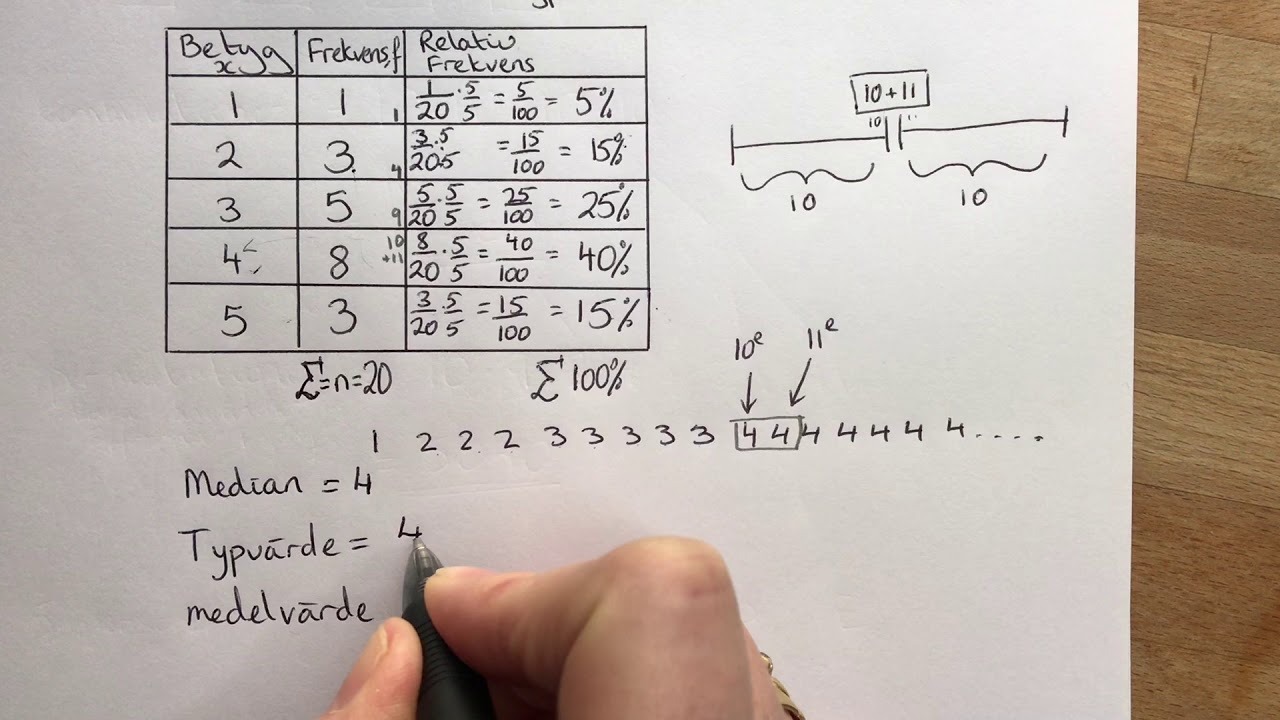 Betyg x Frekvens, f Relativ Frekvens
1 1 1 1/20 · 5/5 = 5/100 = 5%
2 3 4 3·5/20·5 = 15/100 = 15%
3 5 9 5/20 · 5/5 = 25/100 = 25%
4 8 10+11 8/20 · 5/5 = 40/100 = 40%
5 3 3/20 · 5/5 = 15/100 = 15%
Σ=n=20 Σ 100%
10+11
10
10 10
10e 11e
1 2 2 2 3 3 3 3 3 4 4 4 4 4 4 4 ....
Median = 4
Typvärde = 4
medelvärde